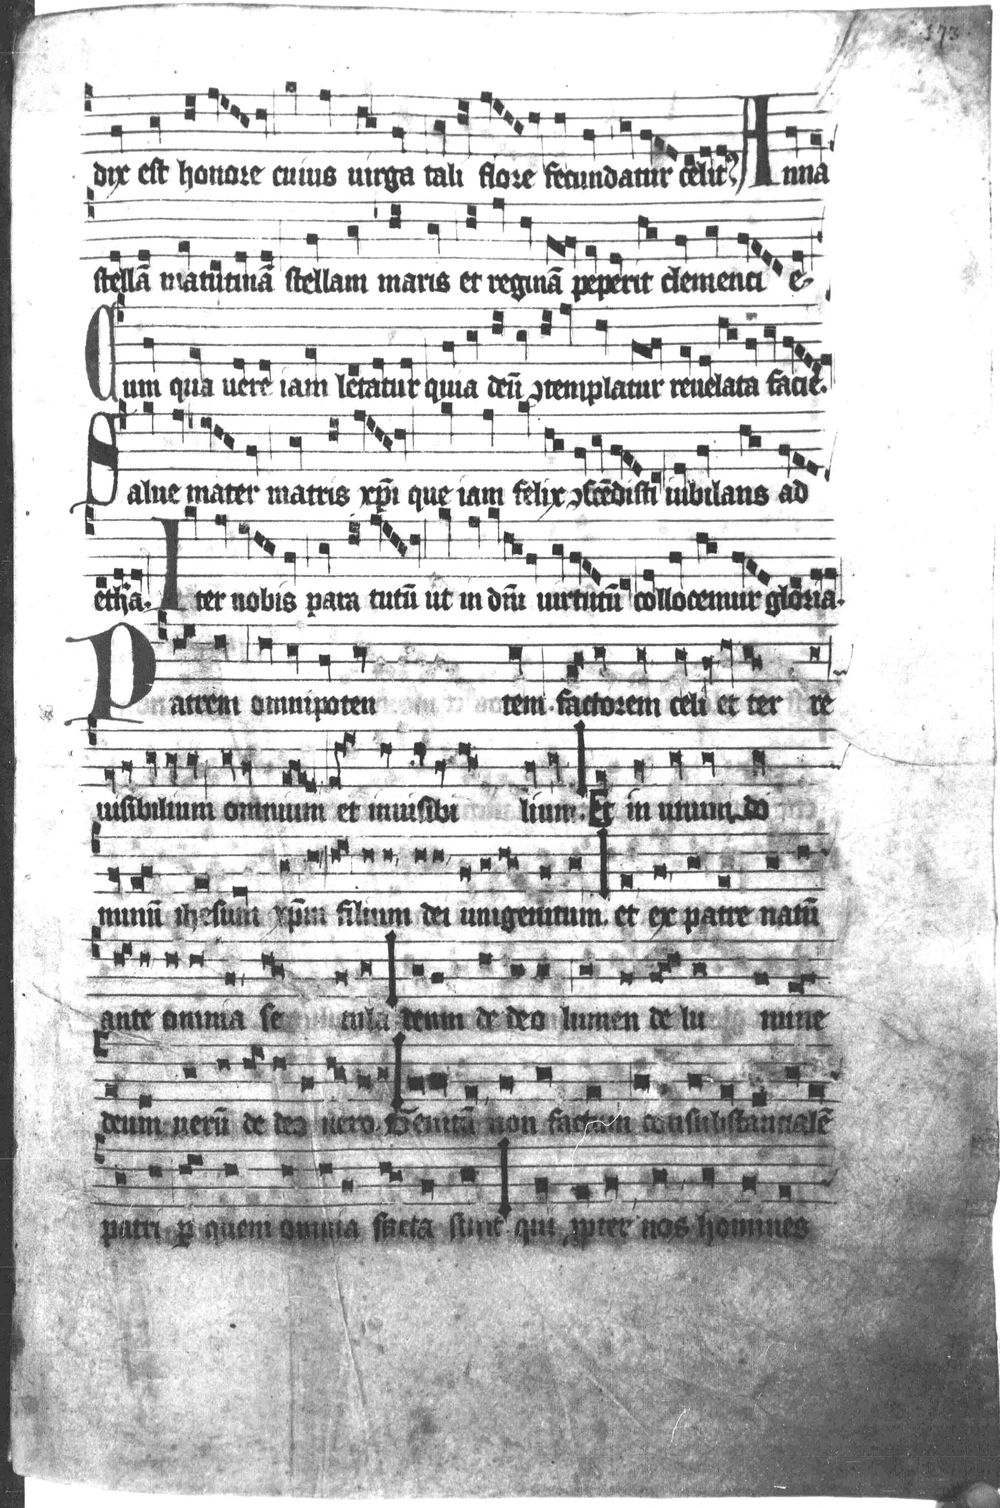 173
dix est honore cuius uirga tali flore fecundatur celit᷒ Anna
stellā matutinā stellam maris et reginā peperit clementi e
Cum qua uere iam letatur quia deū ꝯtemplatur reuelata facie.
Salue mater matris xp̄i que iam felix ꝯscēdisti iubilans ad
eth̄a. Iter nobis para tutū ut in dn̄i uirtutū collocemur gloria.
Patrem omnipoten tem factorem celi et ter re
uisibilium omnium et inuisibi lium. Et in unum do
minū ihesum xp̄m filium dei unigenitum. et ex patre natū
ante omnia se cula deum de deo lumen de lu mine
deum uerū de deo uero. Genitū non factum consubstantialē
patri ꝑ quem omnia facta sunt qui ꝓpter nos homines